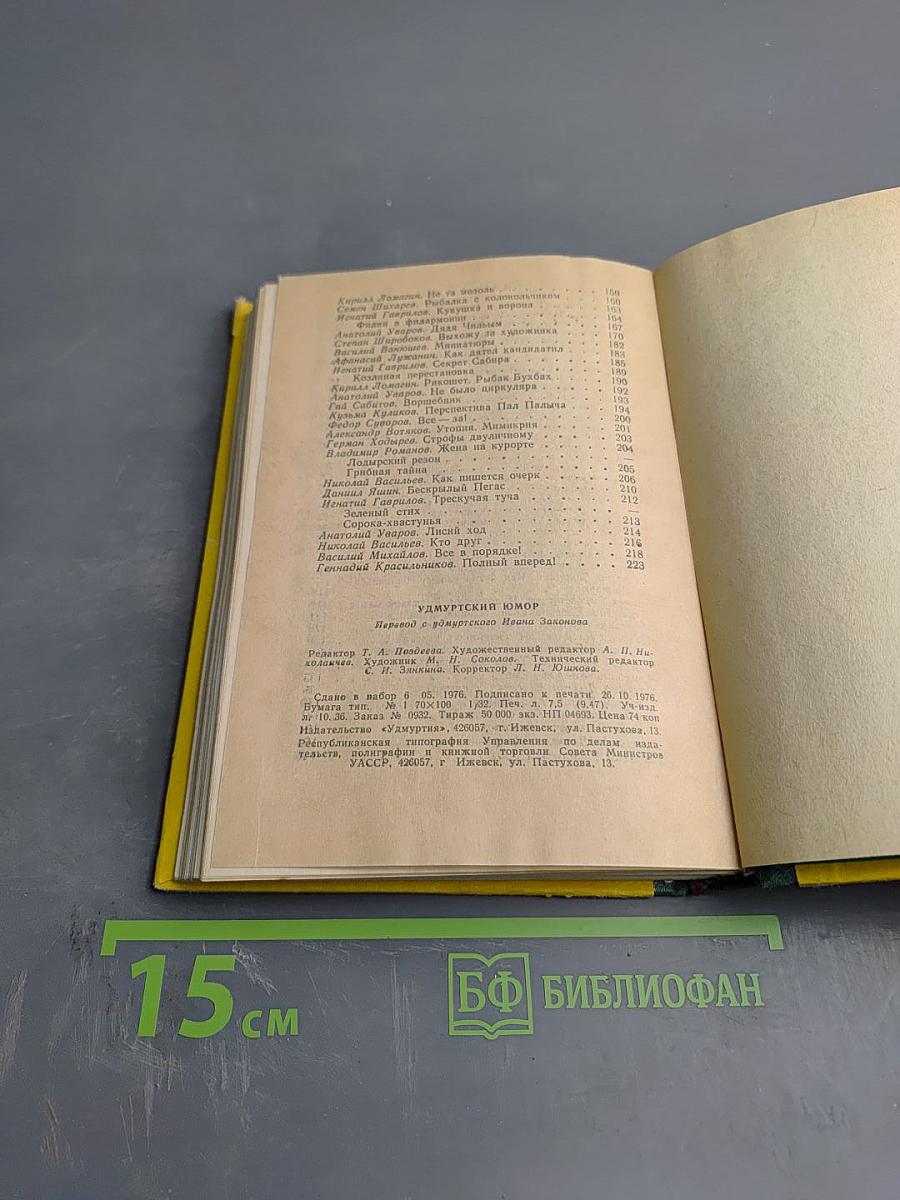 Кирилл Ломагин. Не та мозоль . . . . . . . . 159
Семен Шихарев. Рыбалка с колокольчиком . . . . 160
Игнатий Гаврилов. Кукушка и ворона . . . . . 163
Филин в филармонии . . . . . . . . . 164
Анатолий Уваров. Дядя Чильым . . . . . . . 167
Степан Широбоков. Выхожу за художника . . . . 170
Василий Ванюшев. Миниатюры . . . . . . . 182
Афанасий Лужанин. Как дятел кандидатил . . . . 183
Игнатий Гаврилов. Секрет Сабира . . . . . . 185
Козлиная перестановка . . . . . . . . 189
Кирилл Ломагин. Рикошет. Рыбак Бухбах . . . . 190
Анатолий Уваров. Не было циркуляра . . . . . 192
Гай Сабитов. Воршебник . . . . . . . . 193
Кузьма Куликов. Перспектива Пал Палыча . . . . 194
Федор Суворов. Все — за! . . . . . . . . 200
Александр Вотяков. Утопия. Мимикрия . . . . . 201
Герман Ходырев. Строфы двуличному . . . . . 203
Владимир Романов. Жена на курорте . . . . . 204
Лодырский резон . . . . . . . . . —
Грибная тайна . . . . . . . . . . 205
Николай Васильев. Как пишется очерк . . . . . 206
Даниил Яшин. Бескрылый Пегас . . . . . . 210
Игнатий Гаврилов. Трескучая туча . . . . . . 212
Зеленый стих . . . . . . . . . . —
Сорока-хвастунья . . . . . . . . . 213
Анатолий Уваров. Лисий ход . . . . . . . 214
Николай Васильев. Кто друг . . . . . . . 216
Василий Михайлов. Все в порядке! . . . . . . 218
Геннадий Красильников. Полный вперед! . . . . 223
УДМУРТСКИЙ ЮМОР
Перевод с удмуртского Ивана Законова
Редактор Т. А. Поздеева. Художественный редактор А. П. Ни-
холаичев. Художник М. Н. Соколов. Технический редактор
С. И. Зянкина. Корректор Л. Н. Юшкова.
Сдано в набор 6 05. 1976. Подписано к печати 26. 10. 1976.
Бумага тип. № 1 70×100 1/32. Печ. л. 7,5 (9,47). Уч-изд.
л. 10. 36. Заказ № 0932. Тираж 50 000 экз. НП 04693. Цена 74 коп
Издательство «Удмуртия», 426057, г. Ижевск, ул. Пастухова, 13.
Республиканская типография Управления по делам изда-
тельств, полиграфии и книжной торговли Совета Министров
УАССР, 426057, г Ижевск, ул. Пастухова, 13.
15 см
БФ БИБЛИОФАН